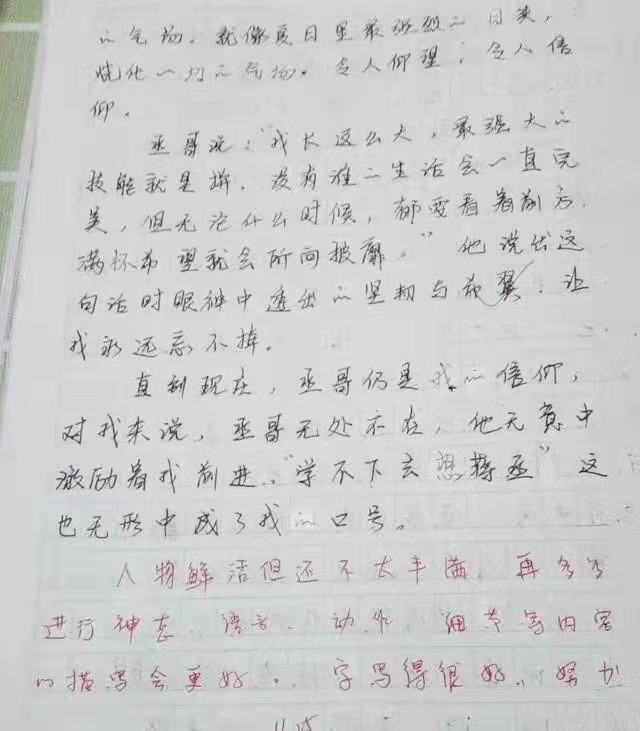 的气场。就像夏日里最强烈的日炎，
烧化一切的气场。令人仰望；令人信
仰。
丞哥说：“我长这么大，最强大的
技能就是拼。没有谁的生活会一直完
美，但无论什么时候，都要看着前方，
满怀希望就会所向披靡。”他说出这
句话时眼神中透出的坚韧与羽翼，让
我永远忘不掉。
直到现在，丞哥仍是我的信仰，
对我来说，丞哥无处不在，他无意中
激励着我前进、“学不下去想蒋丞”这
也无形中成了我的口号。
人物鲜活但还不太丰满，再多多
进行神态、语言、动作、细节等内容
的描写会更好。字写得很好，努力